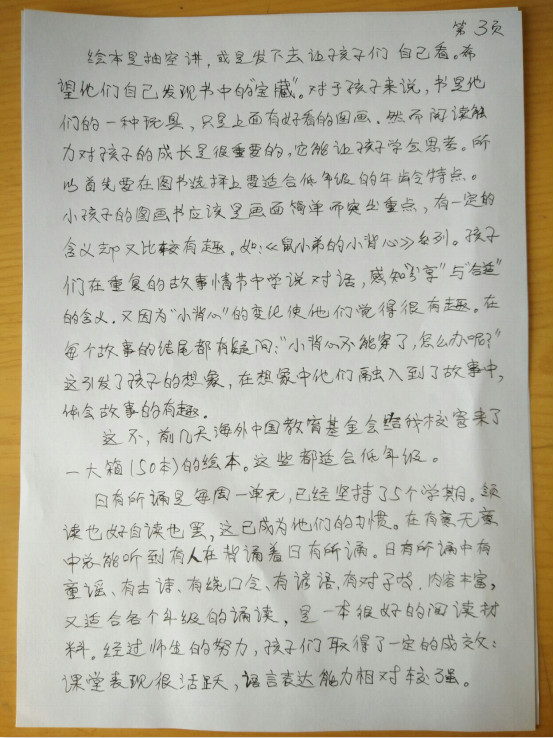 第3页
绘本是抽空讲，或是发下去让孩子们自己看。希
望他们自己发现书中的“宝藏”。对于孩子来说，书是他
们的一种玩具，只是上面有好看的图画。然而阅读能
力对孩子的成长是很重要的，它能让孩子学会思考。所
以首先要在图书选择上要适合低年级的年龄特点。
小孩子的图画书应该是画面简单而突出重点，有一定的
含义却又比较有趣。如：《鼠小弟的小背心》系列。孩子
们在重复的故事情节中学说对话，感知“分享”与“合适”
的含义。又因为“小背心”的变化使他们觉得很有趣。在
每个故事的结尾都有疑问：“小背心不能穿了，怎么办呢？”
这引发了孩子的想象，在想象中他们融入到了故事中，
体会故事的有趣。
这不，前几天海外中国教育基金会给我校寄来了
一大箱（50本）的绘本。这些都适合低年级。
日有所诵是每周一单元，已经坚持了5个学期。领
读也好自读也罢，这已成为他们的习惯。在有意无意
中总能听到有人在背诵着日有所诵。日有所诵中有
童谣、有古诗、有绕口令、有谚语，有对子歌．内容丰富，
又适合各个年级的诵读，是一本很好的阅读材
料。经过师生的努力，孩子们取得了一定的成效：
课堂表现很活跃，语言表达能力相对较强。